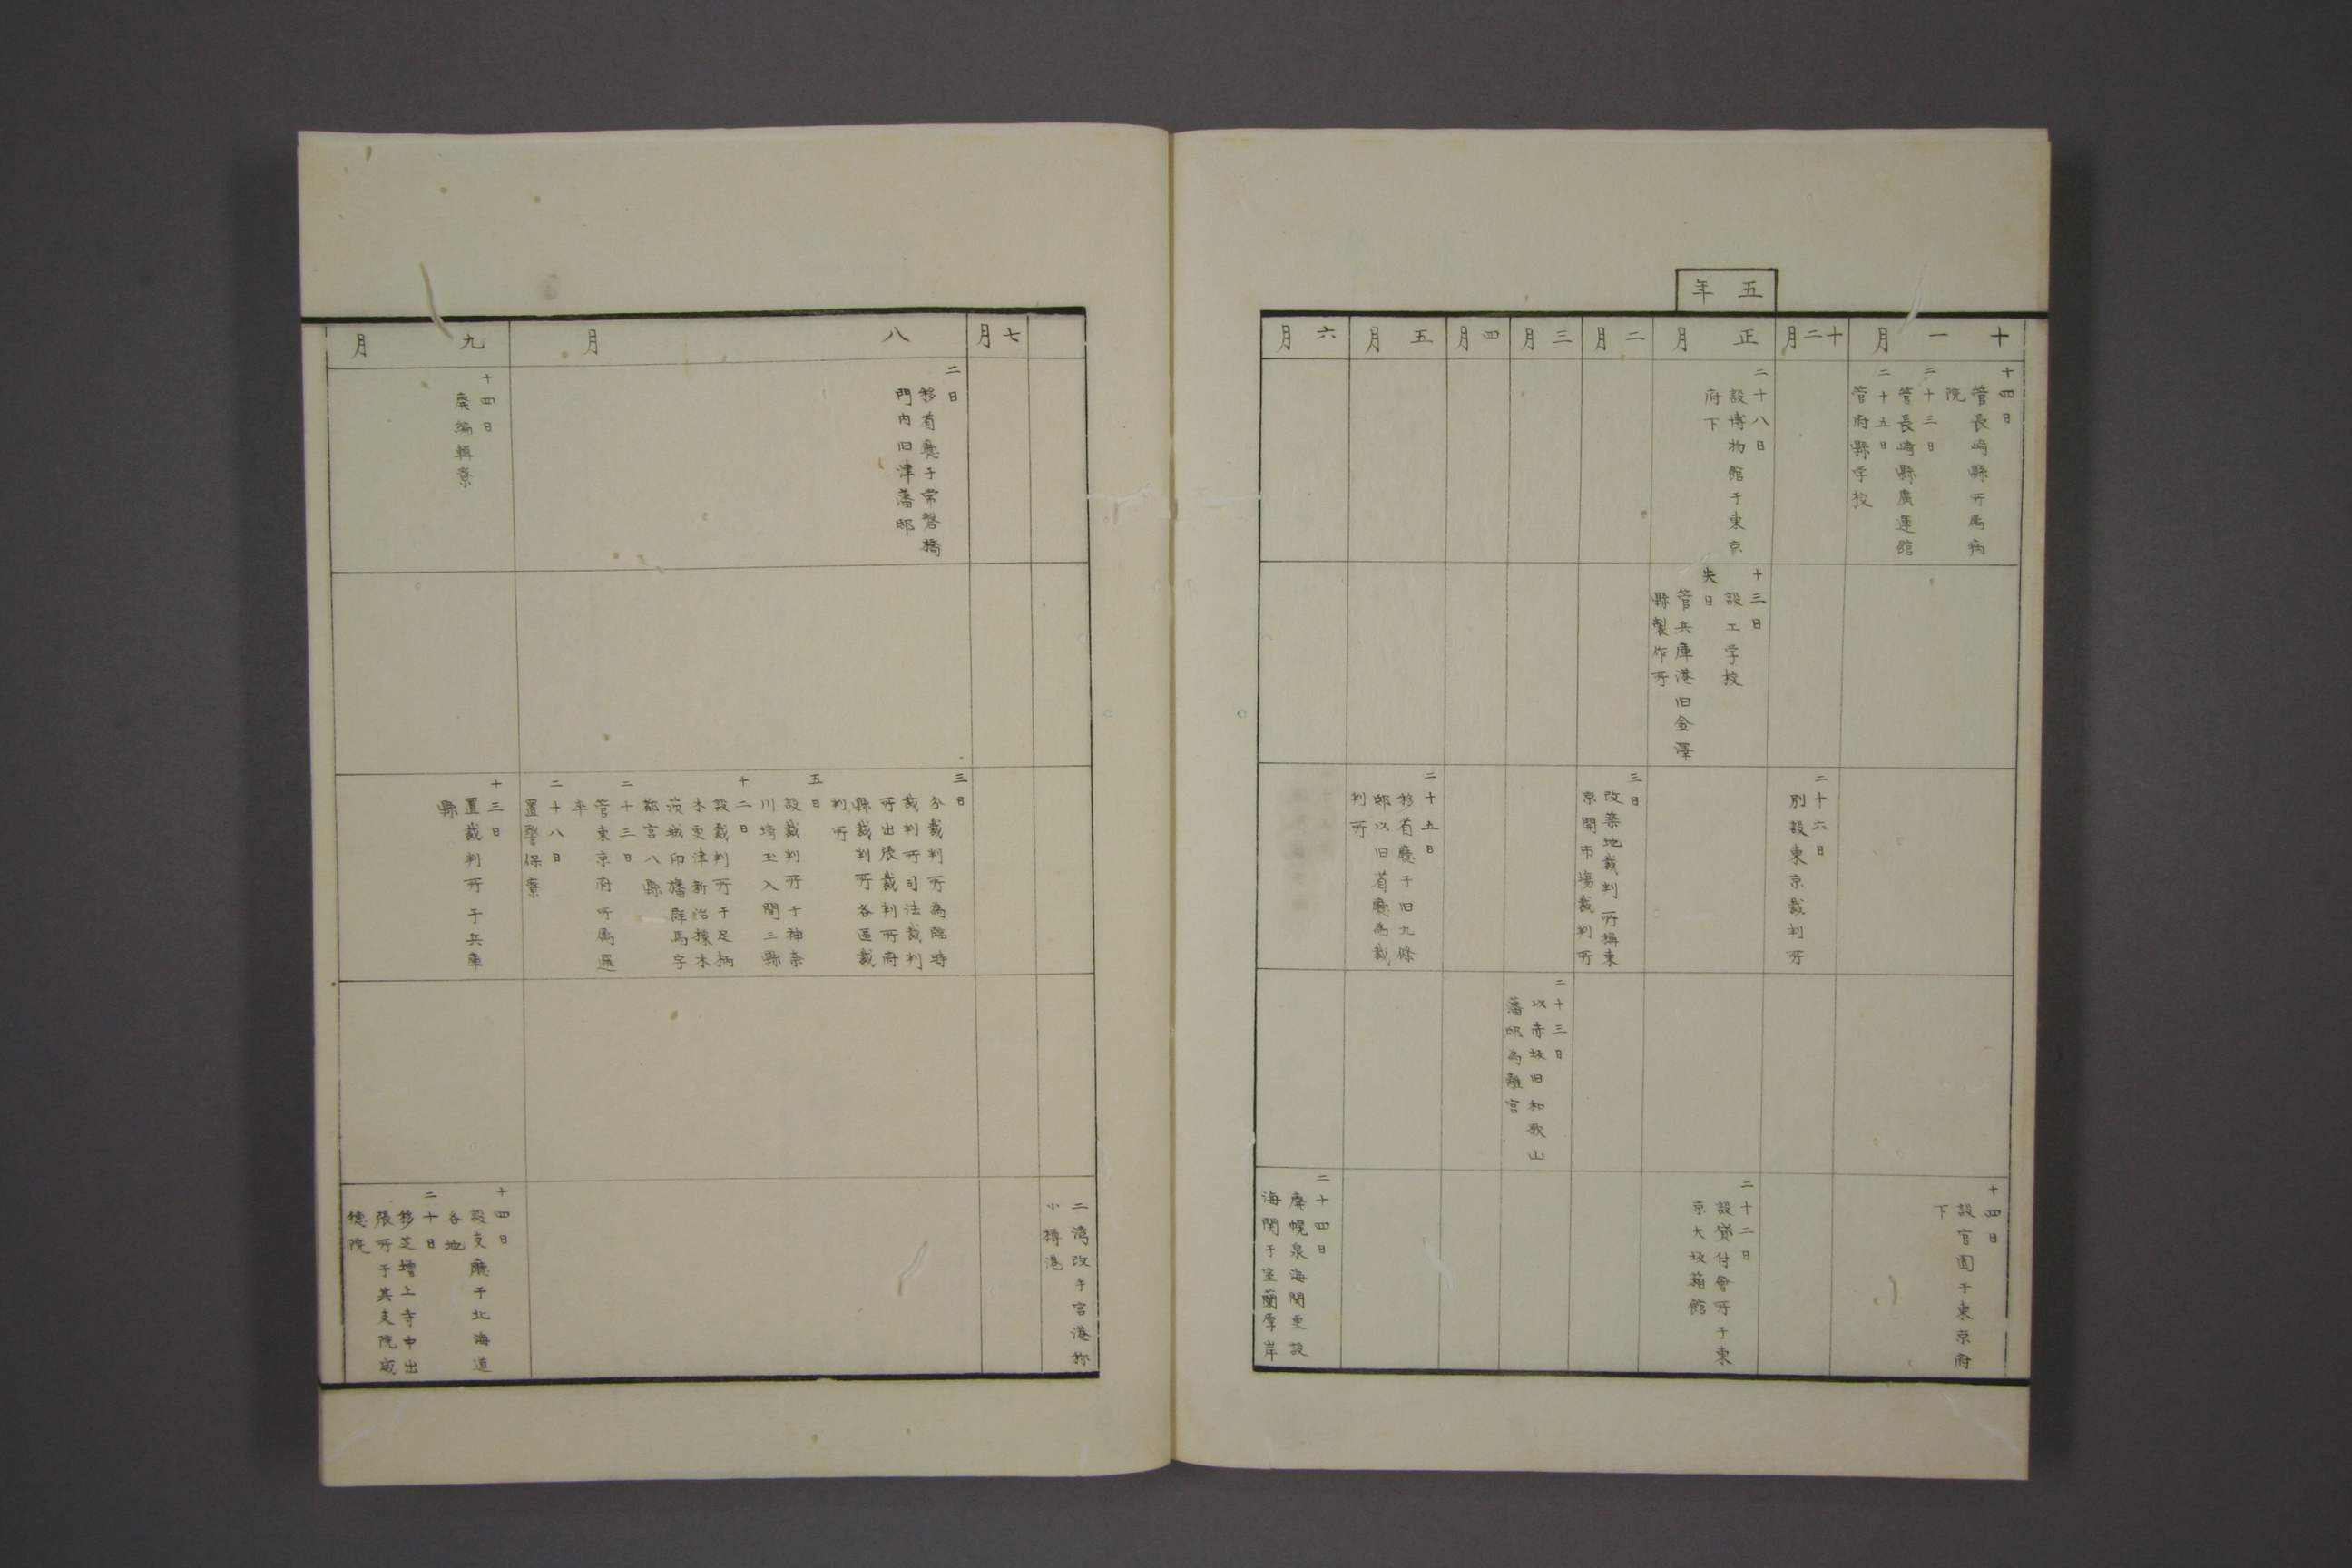 五年
十一月
十四日
管長崎縣所属病
院
二十三日
管長崎縣廣運館
二十五日
管府縣学校
十四日
設官園于東京府
下
十二月
二十六日
別設東京裁判所
正月
二十八日
設博物館于東京
府下
十三日
設工学校
失日
管兵庫港旧金澤
縣製作所
二十二日
設貸付會所于東
京大坂箱館
二月
三日
改築地裁判所稱東
京開市場裁判所
三月
二十三日
以赤坂旧和歌山
藩邸為離宮
四月
五月
二十五日
移省廳于旧九條
邸以旧省廳為裁
判所
六月
二十四日
廃幌泉海関更設
海関于室蘭厚岸
二湾改手宮港称
小樽港
七月
八月
二日
移省廳于常磐橋
門内旧津藩邸
三日
分裁判所為臨時
裁判所司法裁判
所出張裁判所府
縣裁判所各區裁
判所
五日
設裁判所于神奈
川埼玉入間三縣
十二日
設裁判所于足柄
木更津新治櫪木
茨城印旛群馬宇
都宮八縣
二十三日
管東京府所属邏
卒
二十八日
置警保寮
九月
十四日
廃編輯寮
十三日
置裁判所于兵庫
縣
十四日
設支廳于北海道
各地
二十日
移芝増上寺中出
張所于其支院威
徳院